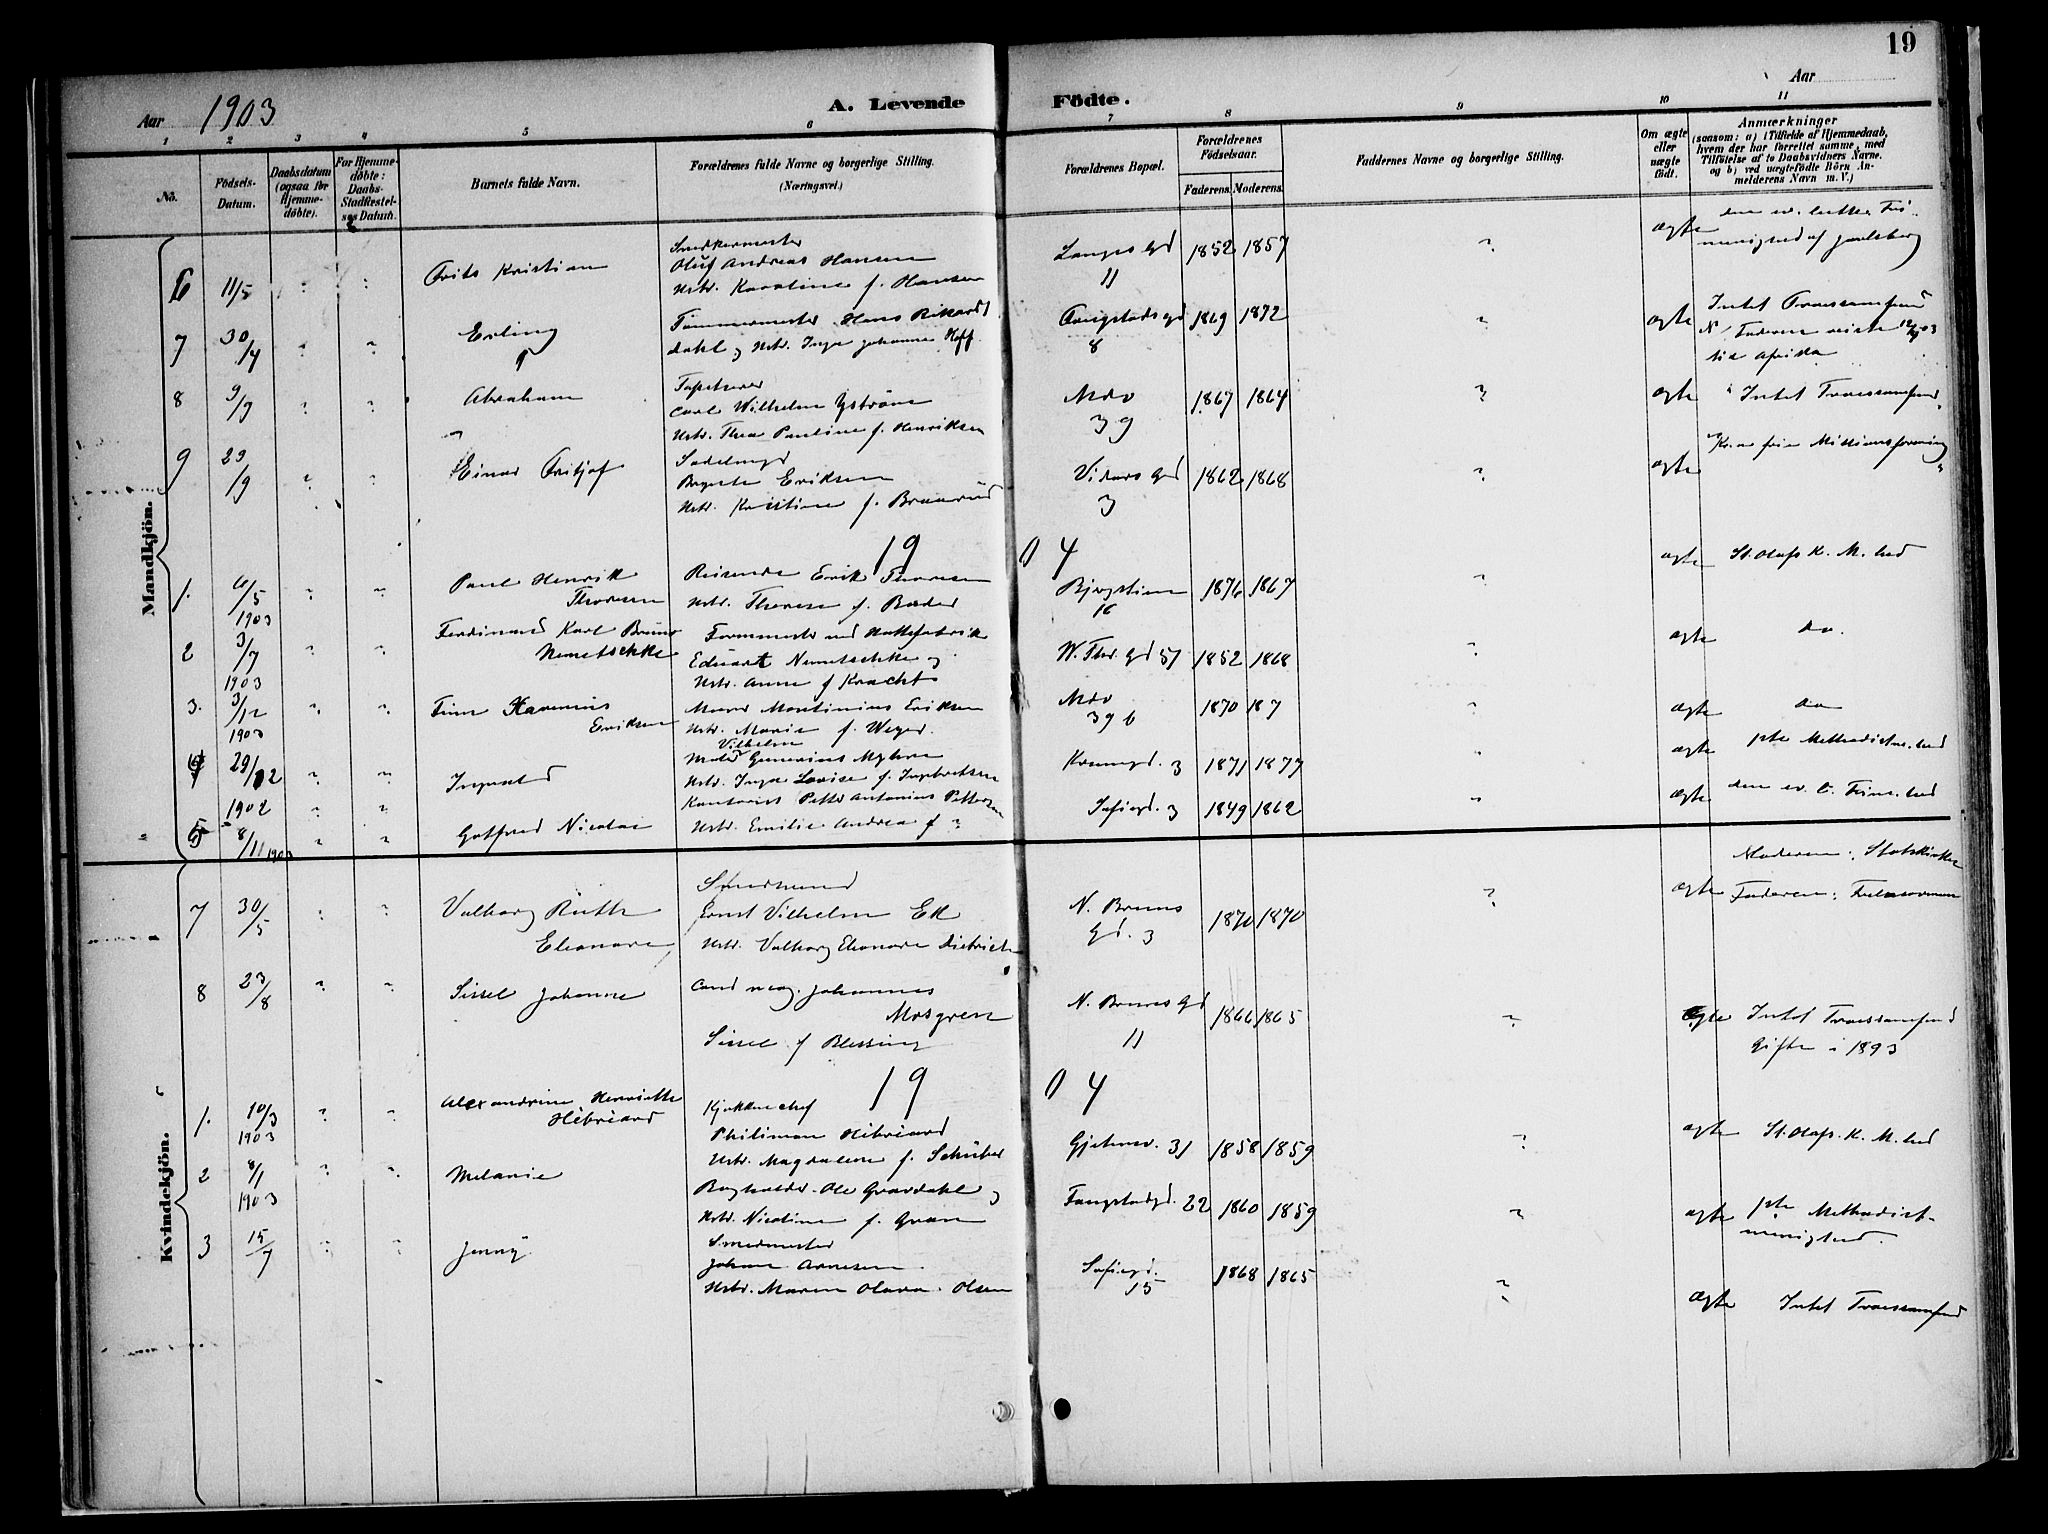 19
Aar 1903
A. Levende Födte.
Aar
1 2 3 4 5 6 7 8 9 10 11
No.
Födsels-Datum.
Daabsdatum (ogsaa for Hjemme-døbte).
For Hjemme-døbte: Daabs-Stadfæstel-ses Datum.
Barnets fulde Navn.
Forældrenes fulde Navne og borgerlige Stilling. (Næringsvei.)
Forældrenes Bopæl.
Forældrenes Födselsaar.
Faderens. Moderens.
Faddernes Navne og borgerlige Stilling.
Om ægte eller uægte født.
Anmærkninger
(saasom: a) i Tilfælde af Hjemmedaab,
hvem der har forrettet samme, med
Tilføielse af to Daabsvidners Navne,
og b) ved uægtefödte Börn An-
melderens Navn m. V.)
Mandkjön.
6 11/5 " " Frits Kristian
Snedkermester
Oluf Andreas Hansen
Hstr. Karoline f. Hansen
Langes Gd 11 1852 1857 " ægte
den ev. luth. Fri-
menighed af Jarlsberg
7 30/4 " " Erling
Tømmermester Hans Rikard
Dahl og Hstr. Inga Johanne Hoff
Fougstads gd 8 1869 1872 " ægte
Intet Troessamfund
Faderen reiste 12/9 03
til Afrika
8 9/9 " " Abraham
Tapetserer
Carl Wilhelm Yström
Hstr. Thea Pauline f. Henriksen
Mdv 39 1867 1864 " ægte
Intet Troessamfund
9 23/9 " " Einar Fritjof
Sadelmgd
Eriksen
Hstr. Kristine f. Braarud
Vidars Gd 3 1862 1868 " ægte
Kr.a frie Missionsforening
1904
1. 6/5 1903 " " Paul Henrik Thoresen
Reisende Erik Thoresen
Hstr. Therese f. Bader
16 1876 1867 " ægte
St. Olafs K. M.hed
2 3/7 1903 " " Ferdinand Karl Bruno Nemetschke
Formmester ved Hattefabrik
Eduart Nemetschke og
Hstr. Anna f Kracht
W. Thr. Gd 51 1852 1868 " ægte do.
3. 3/12 1903 " " Finn Eriksen
Murer Martinius Eriksen
Hstr. Marie f. Weyer.
Mdv 39 b 1870 187 " ægte do
4 29/12 1902 " " Ingvald
Vilhelm
Maler Gunerius Myhre
Hstr. Inga Lovise f. Ingebretsen
3 1871 1877 " ægte
pte Methodistm.hed
5 8/11 1903 " " Gotfred Nicolai
Kontorist Petter Antonius Pettersen
Hstr. Emilie Andrea f "
Sofiegd. 3 1849 1862 " ægte
den ev. l. Frim.hed
Kvindekjön.
7 30/5 " " Valborg Ruth Eleonore
Smedsvend
Ernst Vilhelm Ek
Hstr. Valborg Eleonore Dietrich
N. Bruns Gd. 3 1870 1870 " ægte
Moderen: Statskirken
Faderen:
8 23/8 " " Sissel Johanne
Cand mag. Johannes
Mosgren
Sissel f Blessing
N. Bruns Gd 11 1866 1865 " ægte
Intet Troessamfund
Gifte i 1893
1904
1. 10/3 1903 " " Alexandrine Henriette Hébréard
Kjøkkenchef
Philiman Hébréard
Hstr. Magdalene f. Schübel
31 1858 1859 " ægte
St. Olafs. K. M.hed
2 8/1 1903 " " Melanie
Bogholder Ole Gravdahl og
Hstr. Nicoline f. Gran
Fougstadgd. 22 1860 1859 " ægte
pte Methodist-
menighed.
3 15/7 " " Jenny
Smedmester
Johan Arnesen
Hstr. Maren Olava Olsen
Sofiegd. 15 1868 1865 " ægte
Intet Troessamfund